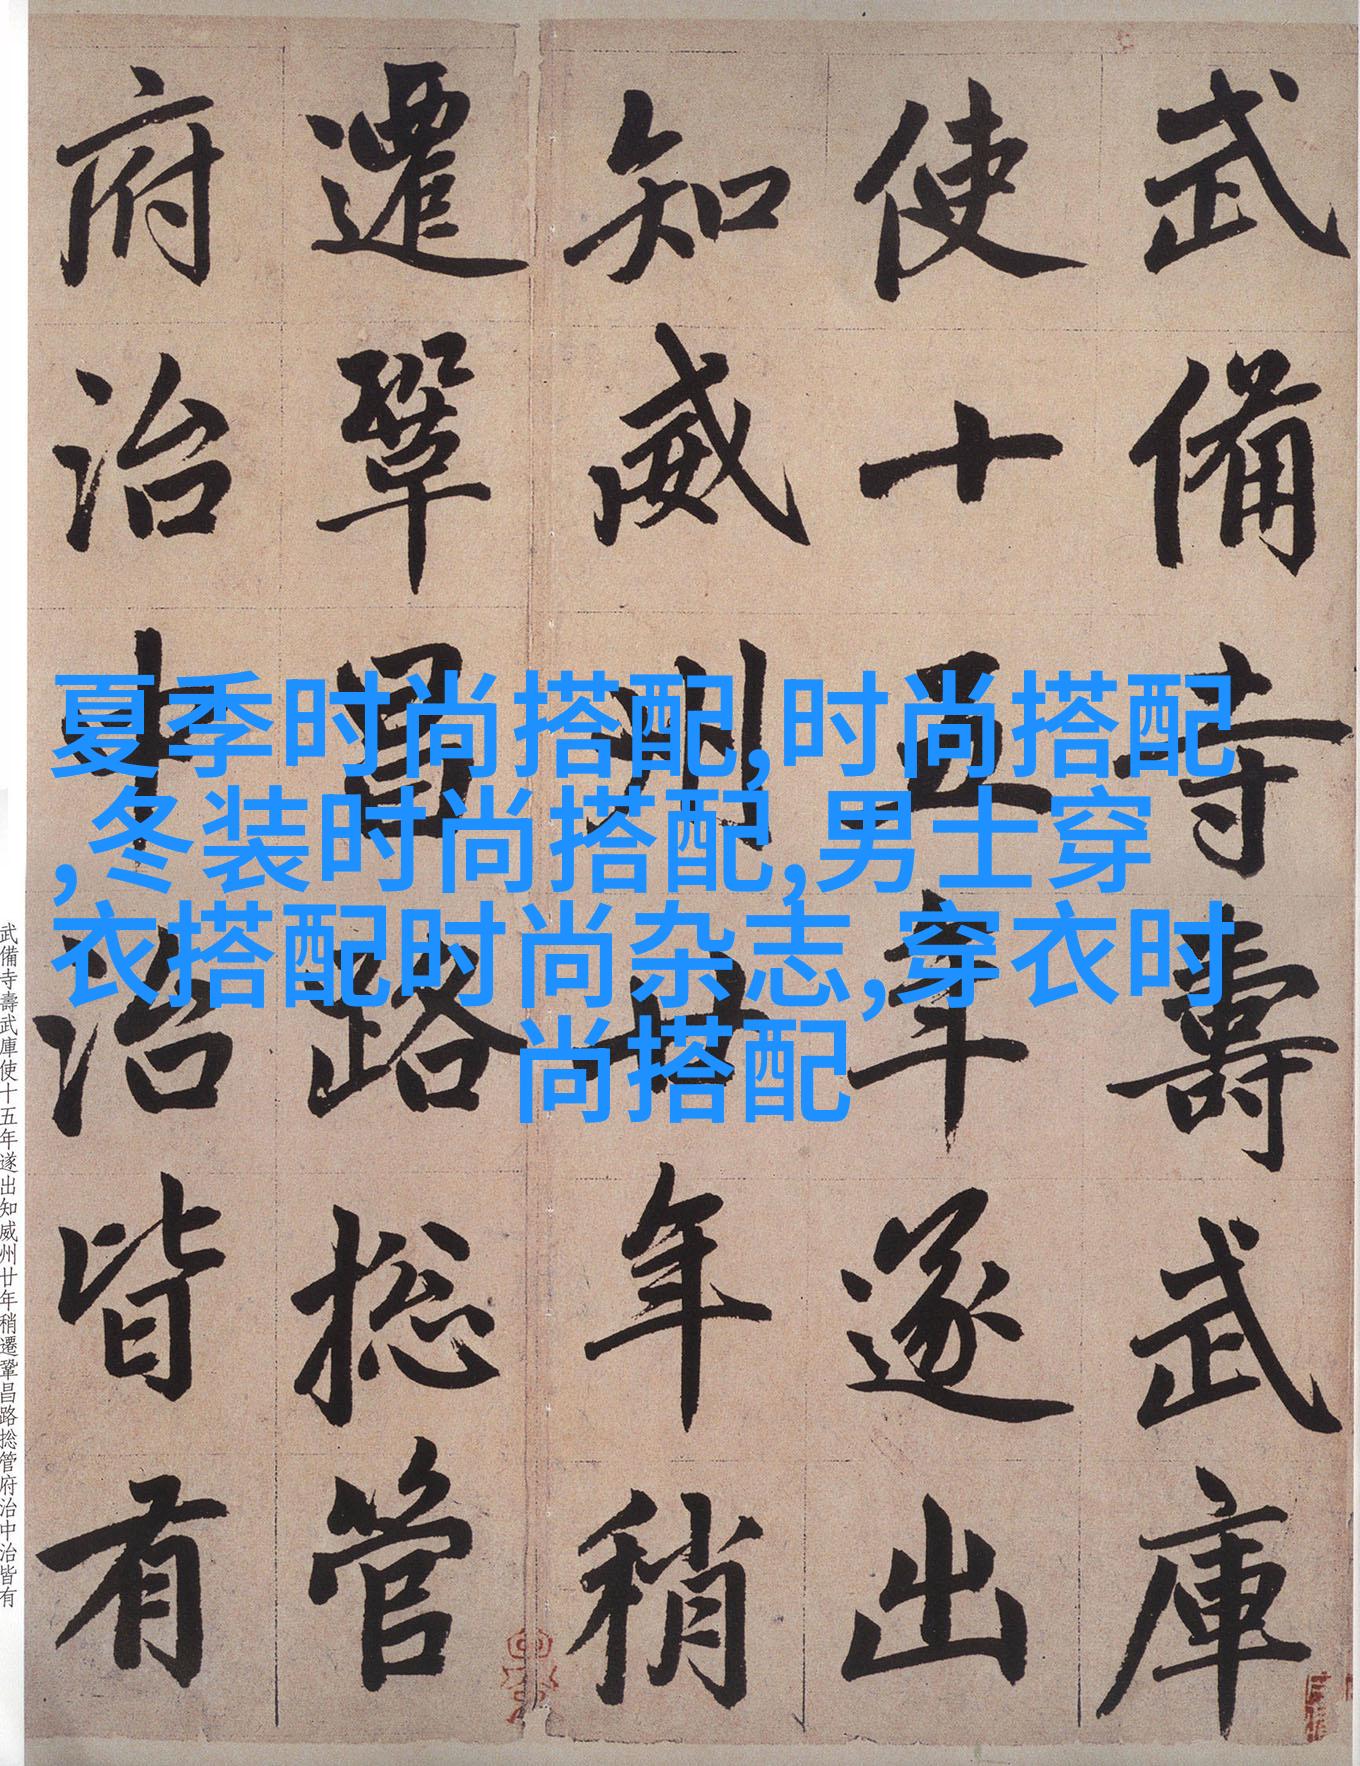 武備寺壽武庫
使十五年遂出
知威州廿年稍
遷鞏昌路捴管
府治中治皆有
夏季时尚搭配,时尚搭配
,冬装时尚搭配,男士穿
衣搭配时尚杂志,穿衣时
尚搭配
武備寺壽武庫使十五年遂出知威州廿年稍遷鞏昌路捴管府治中治皆有